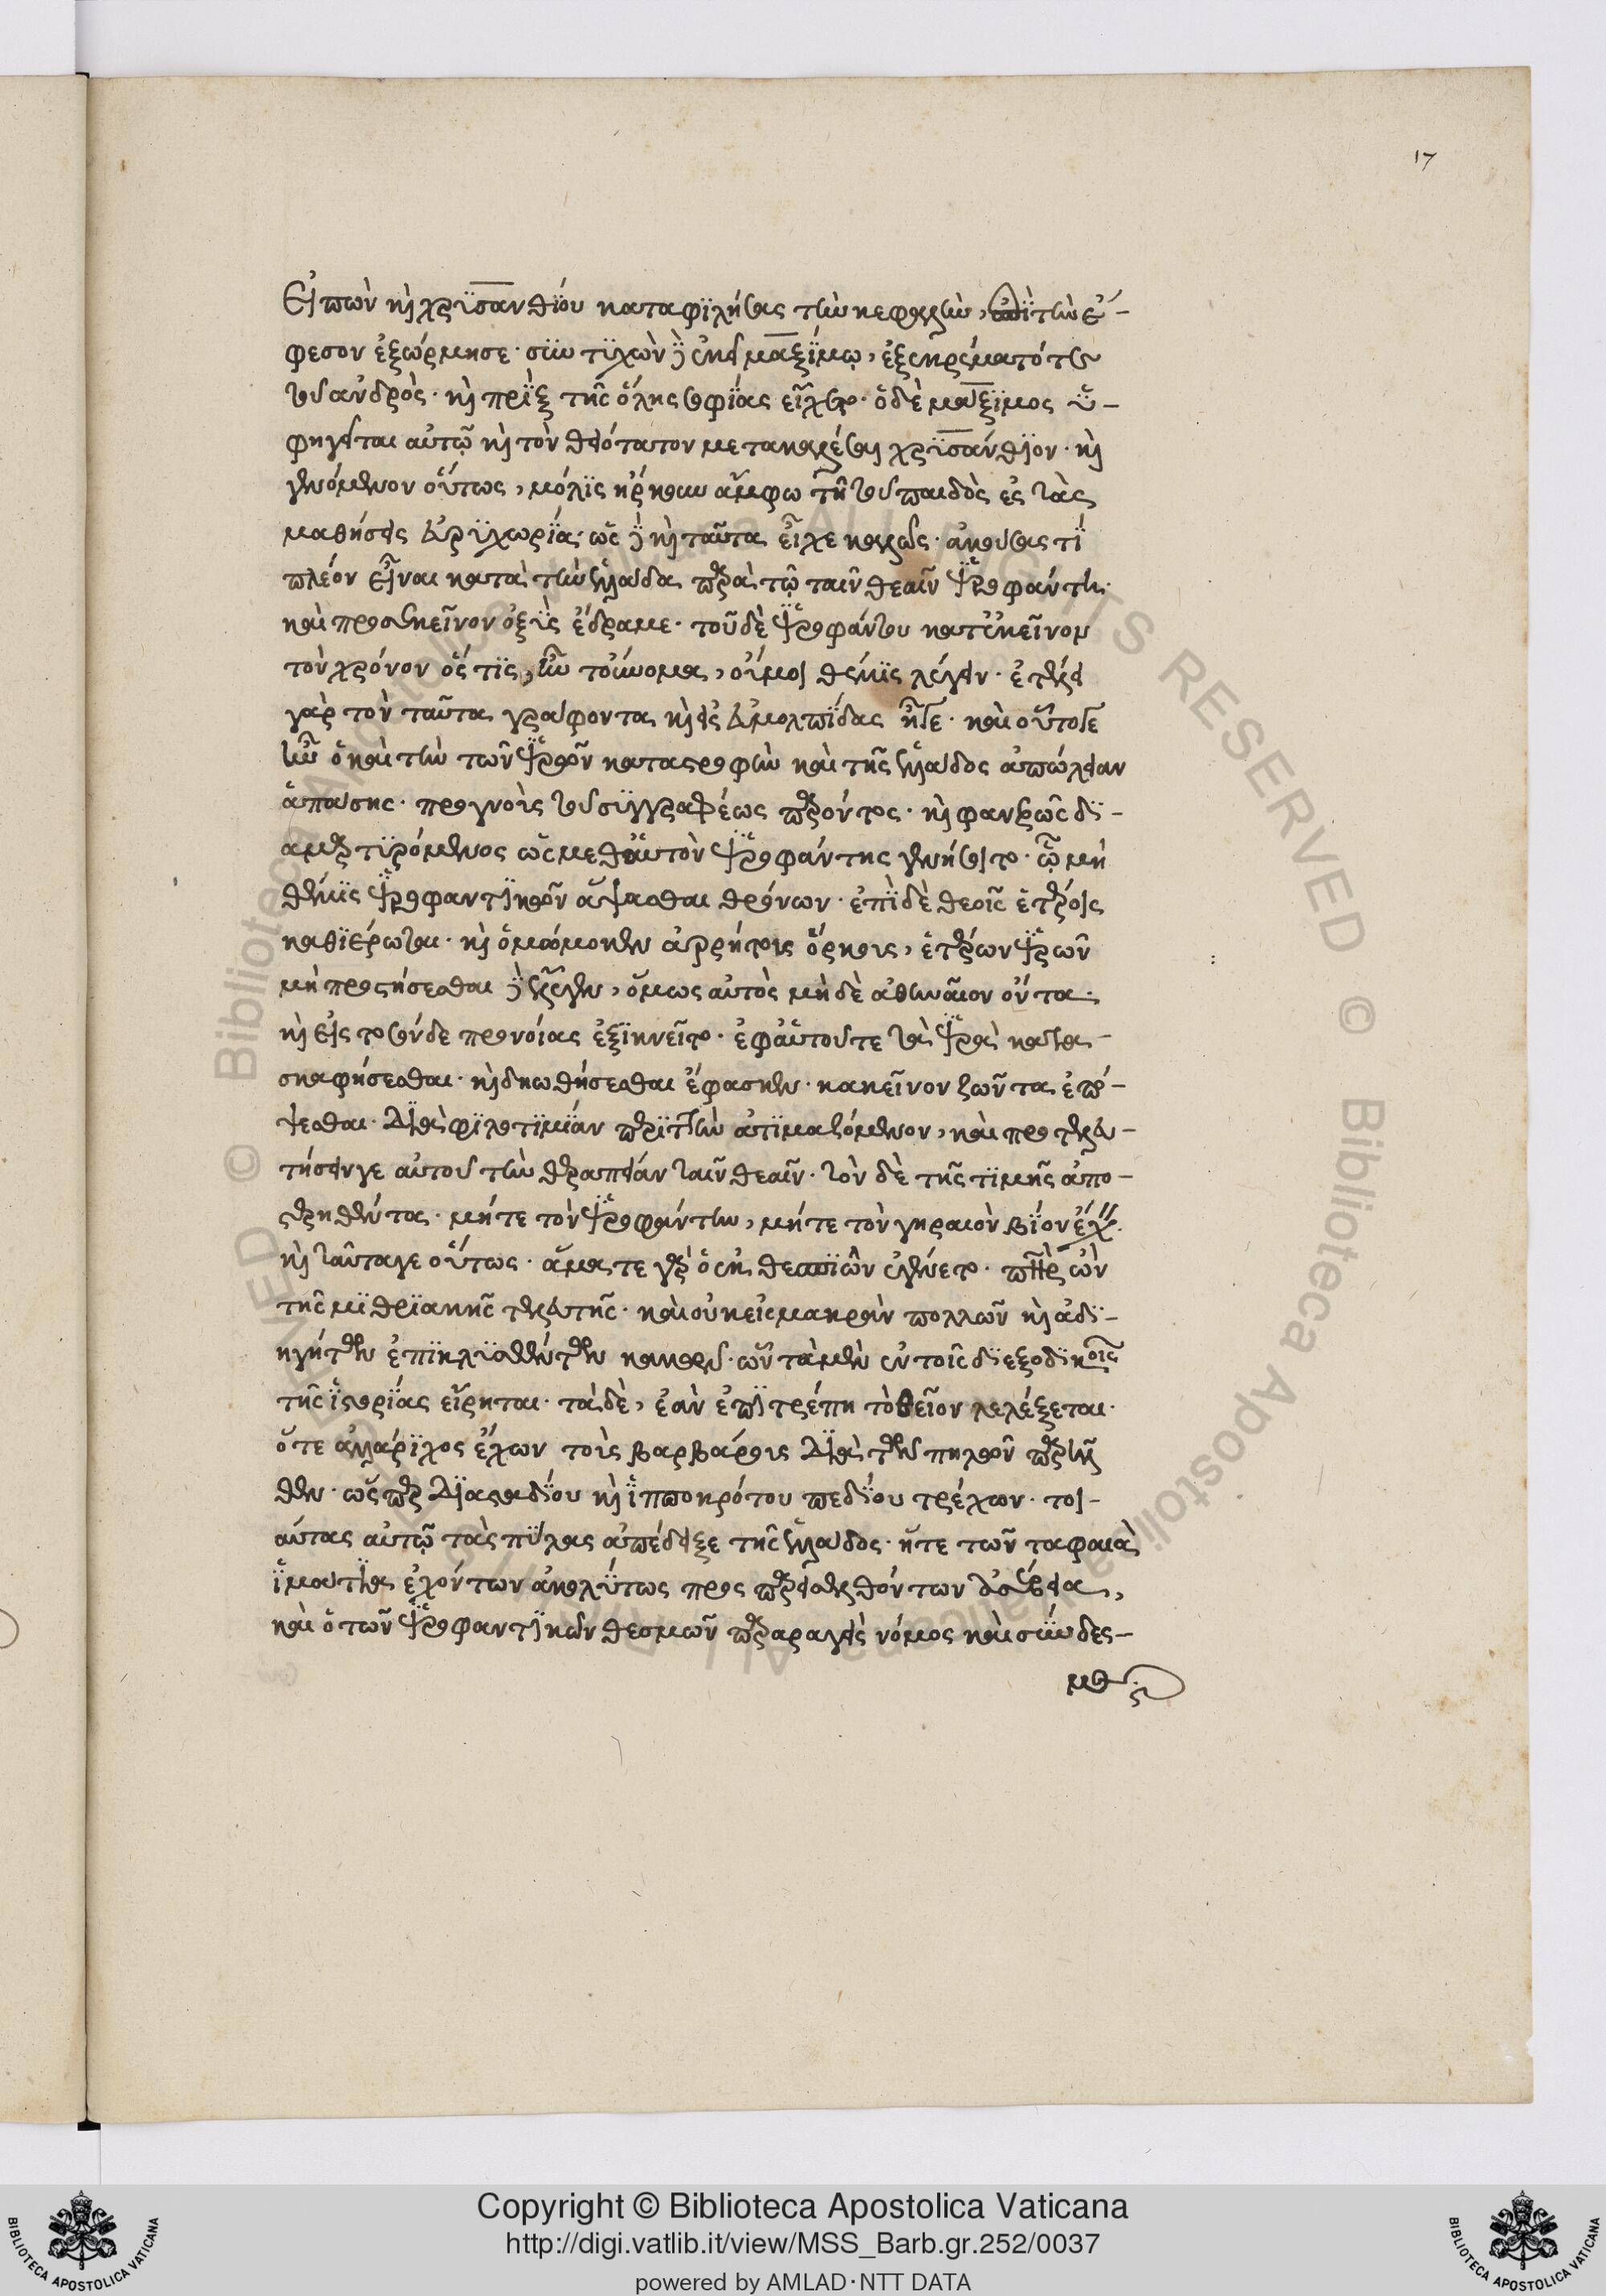 17
Εἰπὼν καὶ χρϊσανθΐου καταφϊλήσας τὴν κεφαλὴν, ἐπὶ τὴν ἔ-
φεσον ἐξώρμησε· συντϋχὼν δὲ ἐκεῖ μαξΐμω, ἐξεκρέματό τε
τοῦ ἀνδρὸς· καὶ πρὶξ τῆς ὅλης σοφΐας εἴχετο· ὁ δὲ μάξϊμος ὑ-
φηγεῖται αὐτῷ καὶ τὸν θειότατον μετακαλέσαι χρϊσάνθϊον· καὶ
γενόμενον οὕτως, μόλϊς ἤρκουν ἄμφω τῆ τοῦ παιδὸς ἐς τὰς
μαθήσεις εὐρϋχωρΐα· ὡς δὲ καὶ ταῦτα εἶχε καλῶς· ἀκούσας τΐ
πλέον εἶναι κατὰ τὴν ἑλλάδα παρὰ τῷ ταῖν θεαῖν ἱεροφάντη·
καὶ πρὸς ἐκεῖνον ὀξὺς ἔδραμε· τοῦ δὲ ἱεροφάντου κατ' ἐκεῖνον
τὸν χρόνον ὅς τϊς, ἦν τοὔνομα, οὔ μοι θέμϊς λέγειν· ἐτέλει
γὰρ τὸν ταῦτα γράφοντα καὶ εἰς εὐμολπΐδας ἦγε· καὶ οὗτός γε
ἦν ὁ καὶ τὴν τῶν ἱερῶν καταστροφὴν καὶ τῆς ἑλλάδος ἀπώλειαν
ἁπάσης· προγνοὺς τοῦ συγγραφέως παρόντος· καὶ φανερῶς δϊ-
αμαρτϋρόμενος ὡς μεθ' αὑτὸν ἱεροφάντης γενήσοιτο· ᾧ μὴ
θέμϊς ἱεροφαντϊκῶν ἅψασθαι θρόνων· ἐπὶ δὲ θεοῖς ἑτέροις
καθϊέρωται· καὶ ὀμώμοκεν ἀρρήτους ὅρκους, ἑτέρων ἱερῶν
μὴ προστήσεσθαι δὲ ἔλεγεν, ὅμως αὐτὸς μὴ δὲ ἀθηναῖον ὄντα·
καὶ εἰς τοσόνδε προνοίας ἐξϊκνεῖτο· ἐφ' αὑτοῦ τε τὰ ἱερὰ κατα-
σκαφήσεσθαι· καὶ δηωθήσεσθαι ἔφασκεν· κἀκεῖνον ζῶντα ἐπό-
ψεσθαι· διὰ φϊλοτϊμΐαν περϊττὴν ἀτϊμαζόμενον, καὶ προτελευ-
τήσειν γε αὐτοῦ τὴν θεραπείαν ταῖν θεαῖν· τὸν δὲ τῆς τϊμῆς ἀπο-
στερηθέντα· μήτε τὸν ἱεροφάντην, μήτε τὸν γηραιὸν βΐον ἔχειν.
καὶ ταῦτα γε οὕτως· ἅμα τε γὰρ ὁ ἐκ θεσπϊῶν ἐγένετο· πατὴρ ὢν
τῆς μϊθρϊακῆς τελετῆς· καὶ οὐκ εἰς μακρὰν πολλῶν καὶ ἀδϊ-
ηγήτων ἐπϊκλϋσθέντων κακῶν· ὧν τὰ μὲν ἐν τοῖς δϊεξοδϊκοῖς
τῆς ἱστορΐας εἴρηται· τὰ δὲ, ἐὰν ἐπϊτρέπη τὸ θεῖον λελέξεται·
ὅτε ἀλλάρϊχος ἔχων τοὺς βαρβάρους διὰ τῶν πηλῶν παρῆλ
θεν· ὥσπερ διὰ σταδΐου καὶ ἱπποκρότου πεδΐου τρέχων· τοι-
αύτας αὐτῷ τὰς πύλας ἀπέδειξε τῆς ἑλλάδος· ἥτε τῶν τὰ φαιὰ
ἱμάτια ἐχόντων ἀκωλύτως προσπαρεισελθόντων ἀσέβεια,
καὶ ὁ τῶν ἱεροφαντϊκῶν θεσμῶν παραραγεὶς νόμος καὶ σύνδεσ-
μος
Copyright © Biblioteca Apostolica Vaticana
http://digi.vatlib.it/view/MSS_Barb.gr.252/0037
powered by AMLAD·NTT DATA